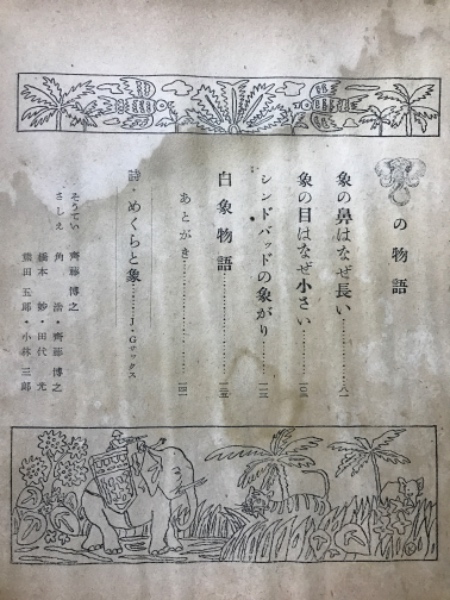 の物語
象の鼻はなぜ長い………八一
象の目はなぜ小さい………一〇三
シンドバッドの象がり………一一三
白象物語………一三五
あとがき………一四一
詩・めくらと象………J・Gサックス
そうてい 齊藤博之
さしえ 角 浩・齊藤博之
橋本 妙・田代 光
黛田五郎・小林三郎